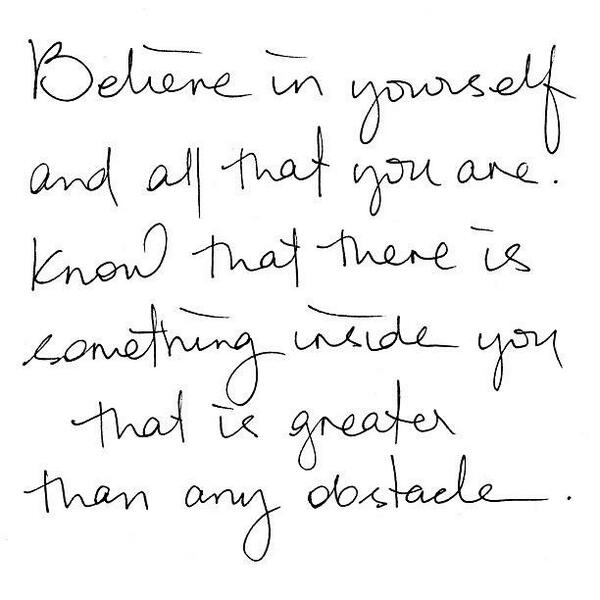 Believe in yourself
and all that you are.
Know that there is
something inside you
that is greater
than any obstacle.